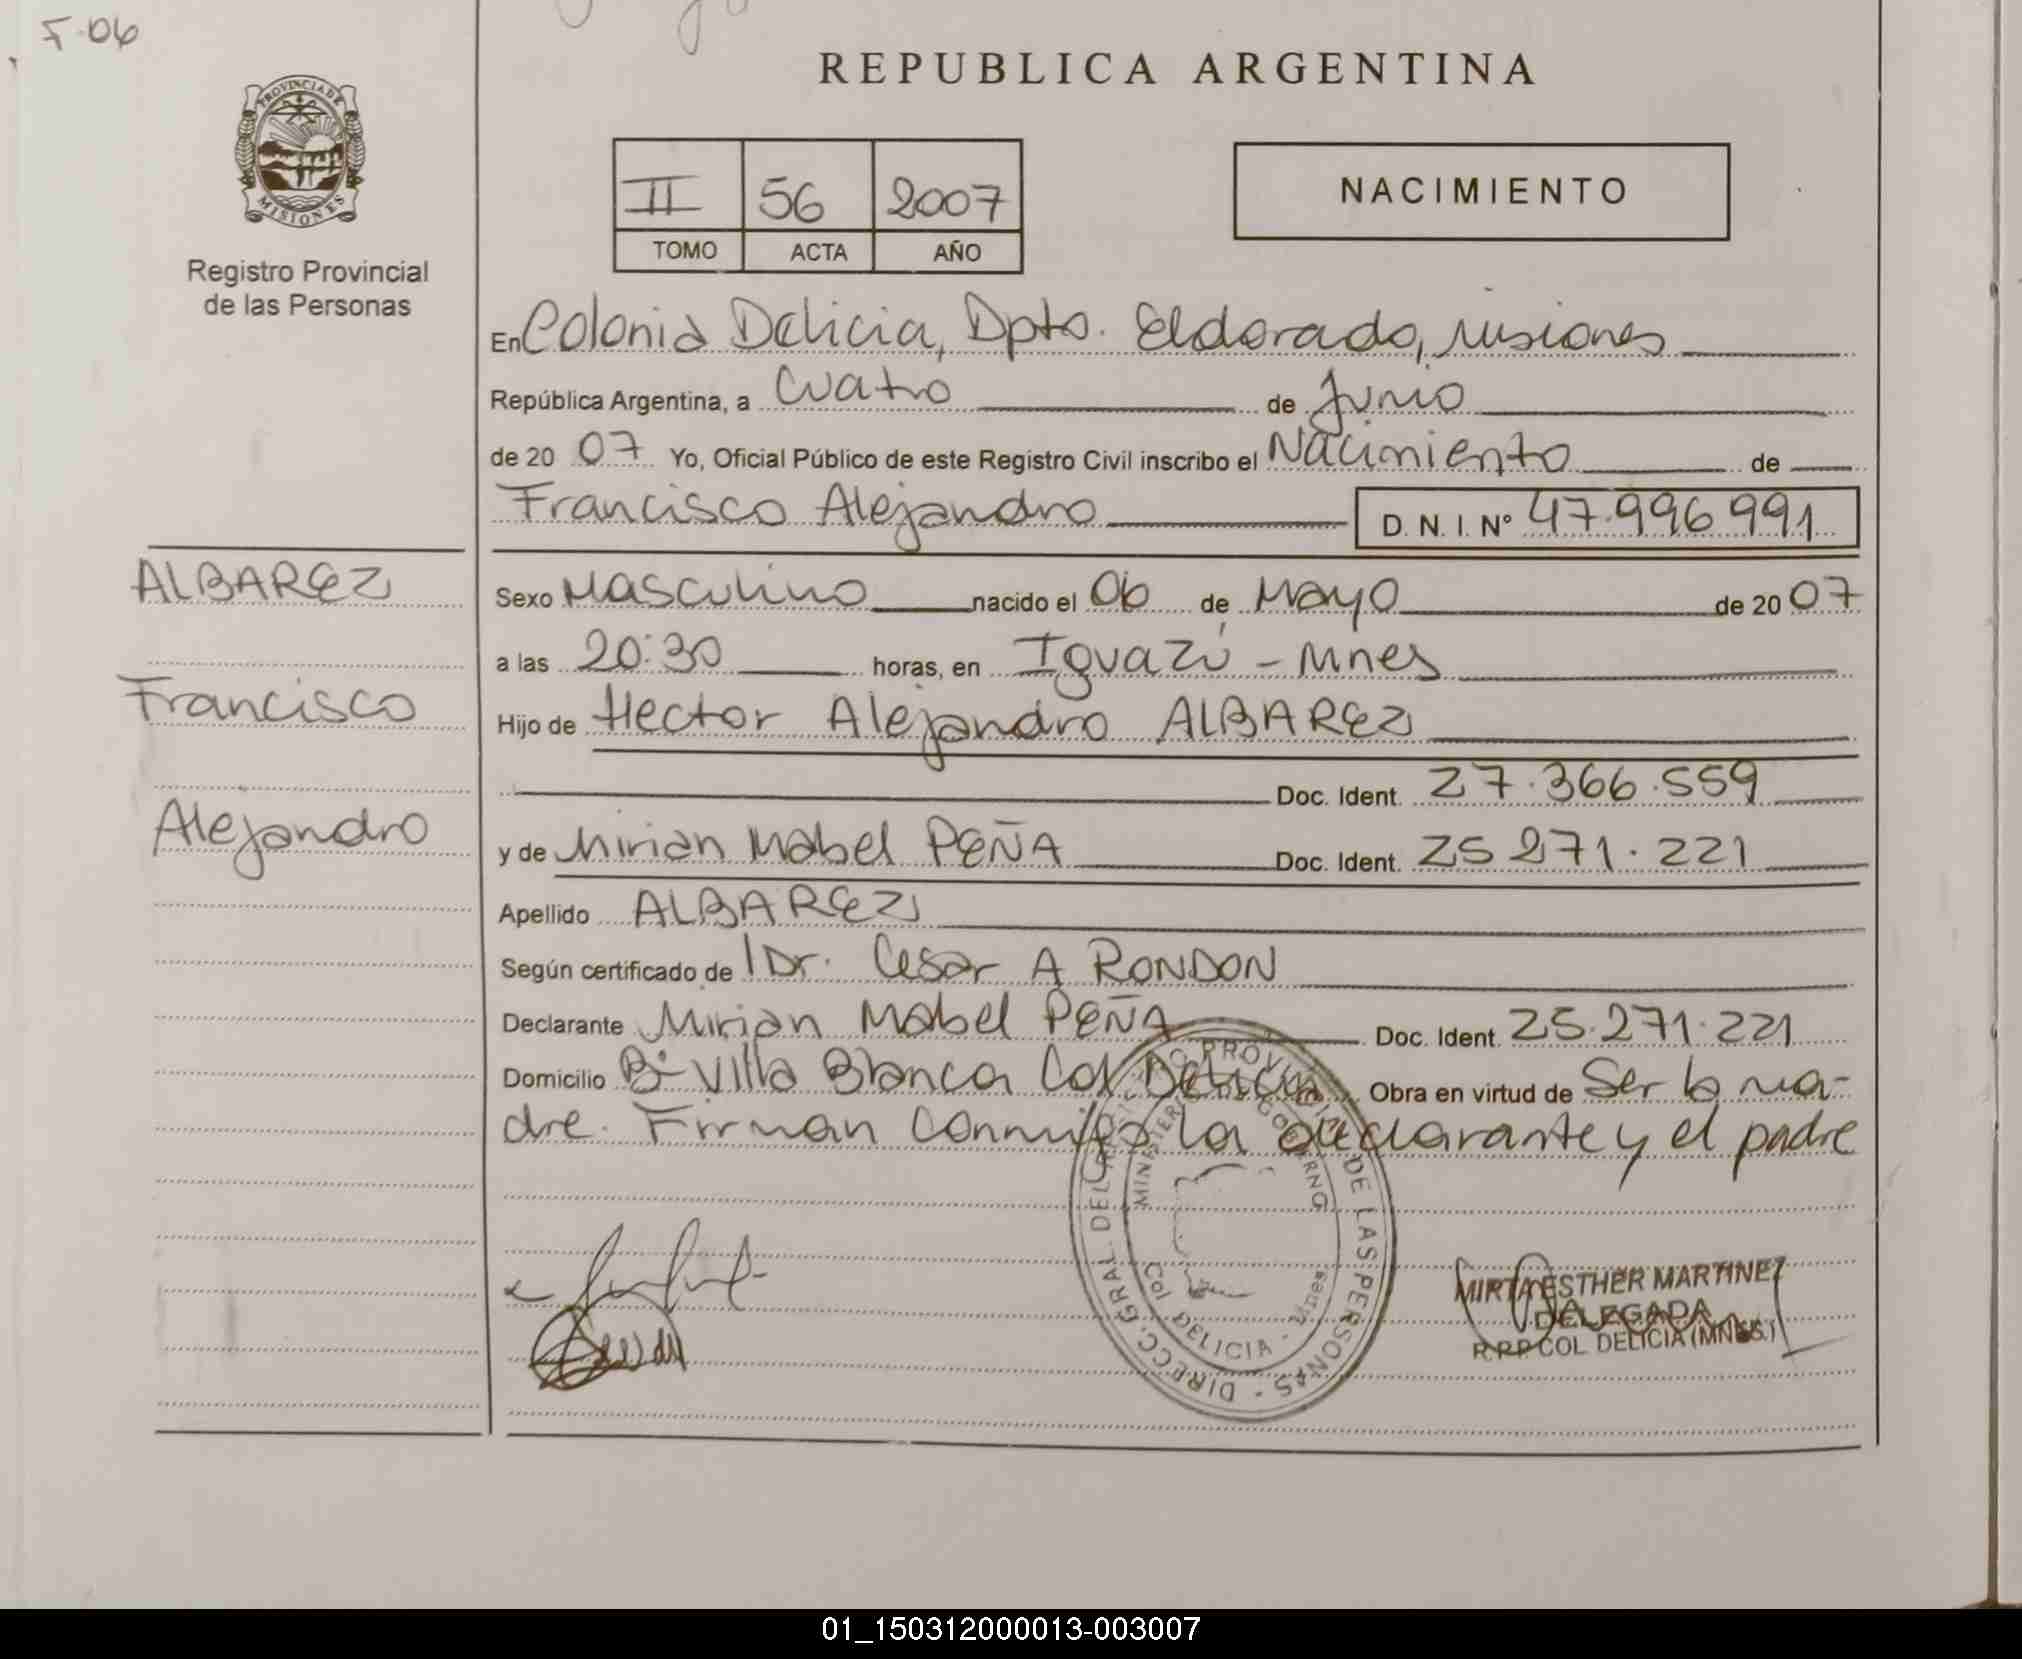 F-06
REPUBLICA ARGENTINA
PROVINCIA DE
MISIONES
Registro Provincial
de las Personas
II 56 2007
TOMO ACTA AÑO
NACIMIENTO
En Colonia Delicia, Dpto. Eldorado, Misiones
República Argentina, a Cuatro de Junio
de 20 07 Yo, Oficial Público de este Registro Civil inscribo el Nacimiento de
Francisco Alejandro D. N. I. Nº 47.996 991
ALBAREZ
Francisco
Alejandro
Sexo Masculino nacido el 06 de Mayo de 20 07
a las 20:30 horas, en Iguazú - Mnes
Hijo de Hector Alejandro ALBAREZ
Doc. Ident. 27.366.559
y de Mirian Mabel PEÑA Doc. Ident. 25 271.221
Apellido ALBAREZ
Según certificado de Dr. Cesar A RONDON
Declarante Mirian Mabel PEÑA Doc. Ident. 25.271.221
Domicilio Bº Villa Blanca Col Delicia Obra en virtud de Ser la ma-
dre. Firman conmigo la declarante y el padre
DIRECC. GRAL. DEL REGISTRO PROVINCIAL DE LAS PERSONAS -
MINISTERIO DE GOBIERNO
Col DELICIA - Mnes
MIRTA ESTHER MARTINEZ
DELEGADA
R.P.P. COL DELICIA (MNES.)
01_150312000013-003007